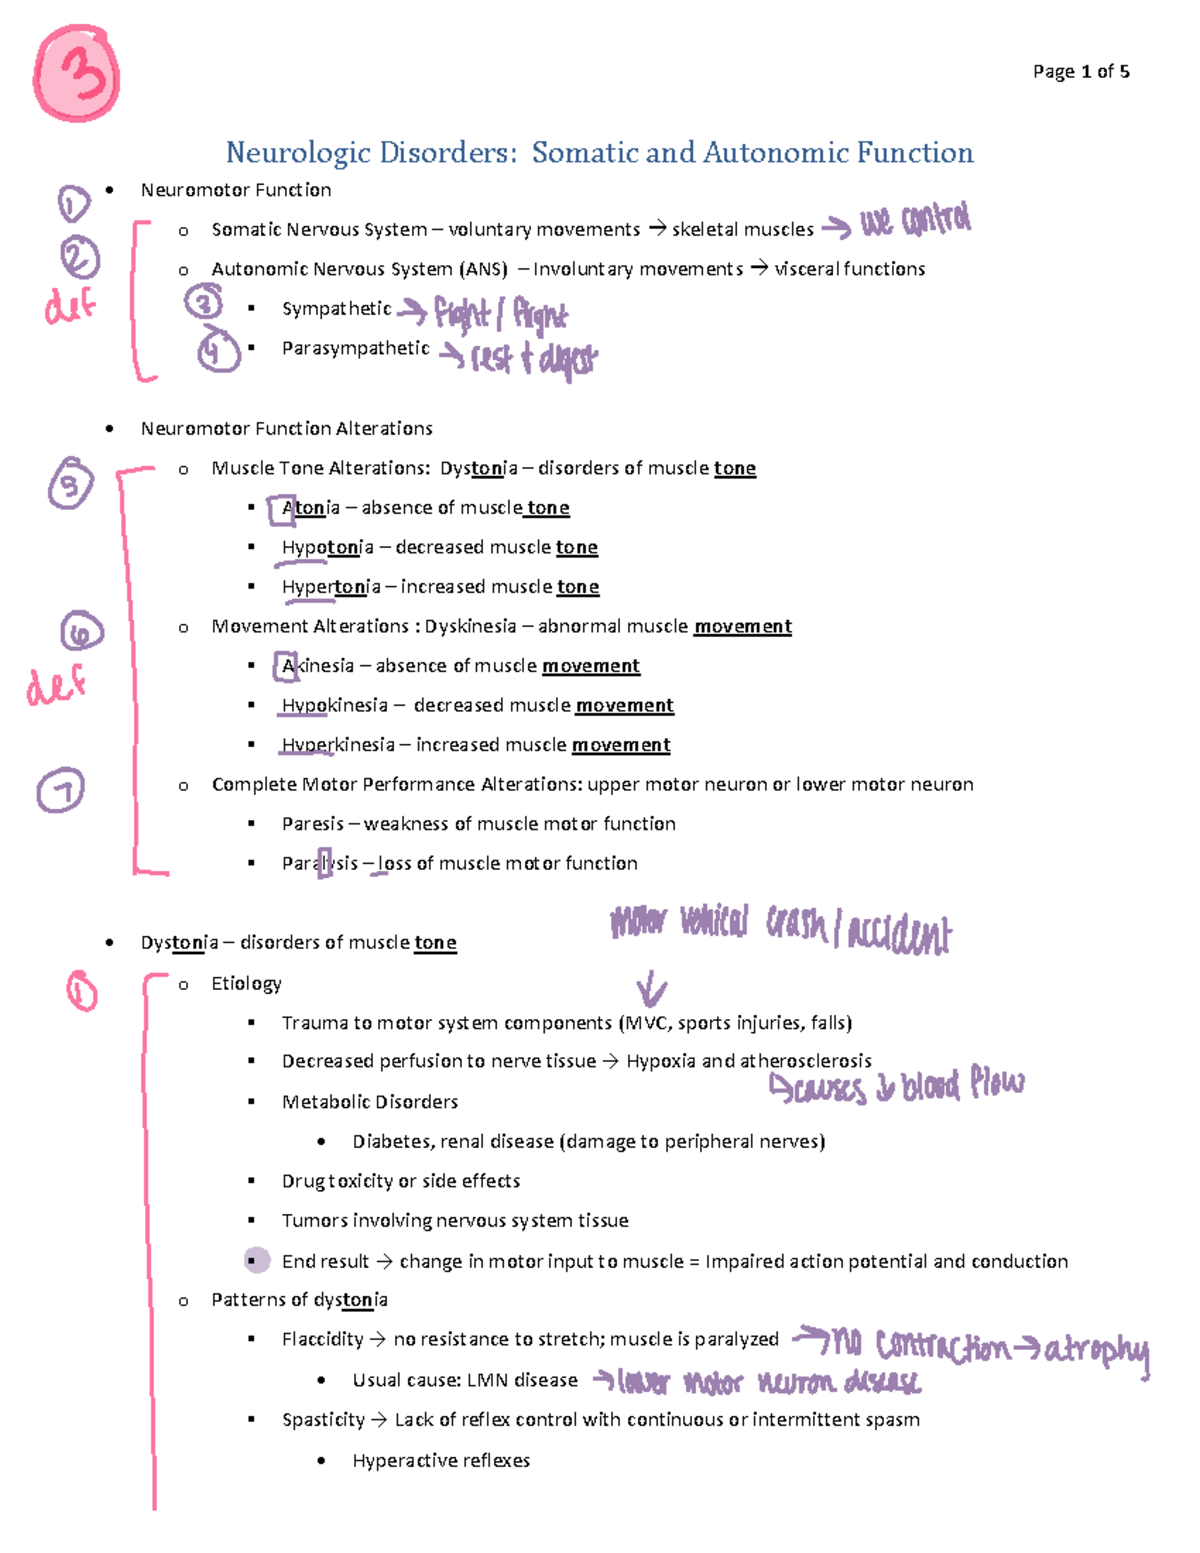 3
Page 1 of 5
Neurologic Disorders: Somatic and Autonomic Function
1 • Neuromotor Function
o Somatic Nervous System – voluntary movements → skeletal muscles → we control
2 o Autonomic Nervous System (ANS) – Involuntary movements → visceral functions
def 3 ▪ Sympathetic → fight / flight
4 ▪ Parasympathetic → rest + digest
• Neuromotor Function Alterations
5 o Muscle Tone Alterations: Dystonia – disorders of muscle tone
▪ Atonia – absence of muscle tone
▪ Hypotonia – decreased muscle tone
▪ Hypertonia – increased muscle tone
6 o Movement Alterations : Dyskinesia – abnormal muscle movement
def ▪ Akinesia – absence of muscle movement
▪ Hypokinesia – decreased muscle movement
▪ Hyperkinesia – increased muscle movement
7 o Complete Motor Performance Alterations: upper motor neuron or lower motor neuron
▪ Paresis – weakness of muscle motor function
▪ Paralysis – loss of muscle motor function
motor vehical crash / accident
• Dystonia – disorders of muscle tone
1 o Etiology
▪ Trauma to motor system components (MVC, sports injuries, falls)
▪ Decreased perfusion to nerve tissue → Hypoxia and atherosclerosis
→ causes ↓ blood flow
▪ Metabolic Disorders
• Diabetes, renal disease (damage to peripheral nerves)
▪ Drug toxicity or side effects
▪ Tumors involving nervous system tissue
▪ End result → change in motor input to muscle = Impaired action potential and conduction
o Patterns of dystonia
▪ Flaccidity → no resistance to stretch; muscle is paralyzed → no contraction → atrophy
• Usual cause: LMN disease → lower motor neuron disease
▪ Spasticity → Lack of reflex control with continuous or intermittent spasm
• Hyperactive reflexes